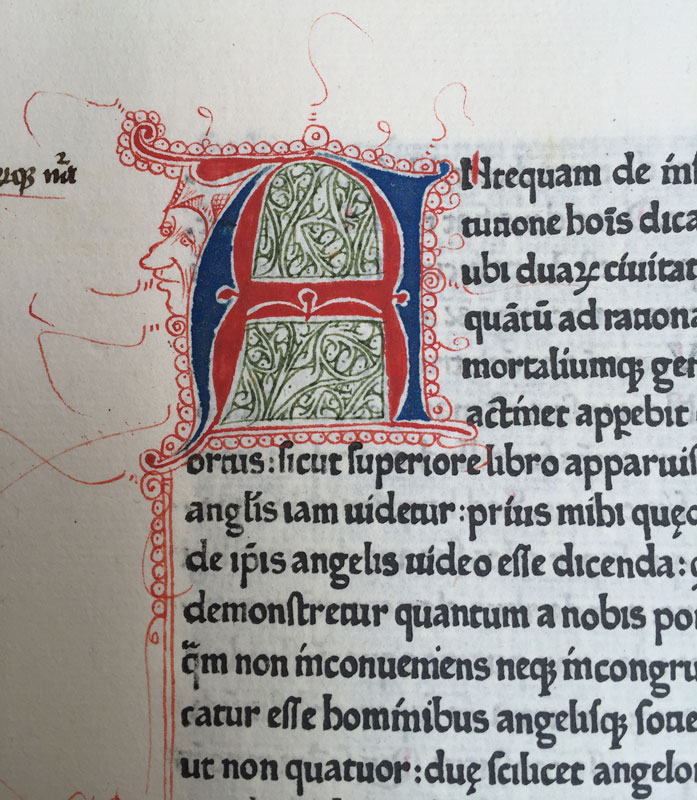 ANtequam de inſ
tutione hoīs dica
ubi duaꝝ ciuitat
quātū ad rationa
mortaliumqꝫ gen
actinet apꝑebit
ortus: ſicut ſuperiore libro apparuiſ
angl̄is iam uidetur: prius mihi quę
de ip̄is angelis uideo eſſe dicenda:
demonſtretur quantum a nobis po
q̄m non inconueniens neqꝫ incongru
catur eſſe hominibus angeliſqꝫ ſotie
ut non quatuor: duę ſcilicet angelo